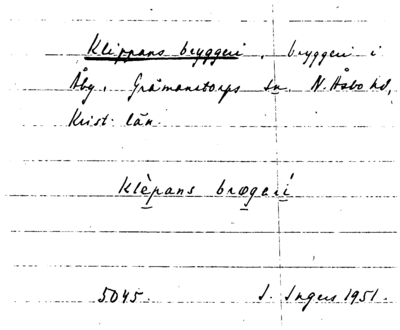 Klippans bryggeri, bryggeri i
Åby, Gråmanstorps sn. N. Åsbo hd,
Krist. län.
Klèpans brøgerí
5045. I. Ingers 1951.